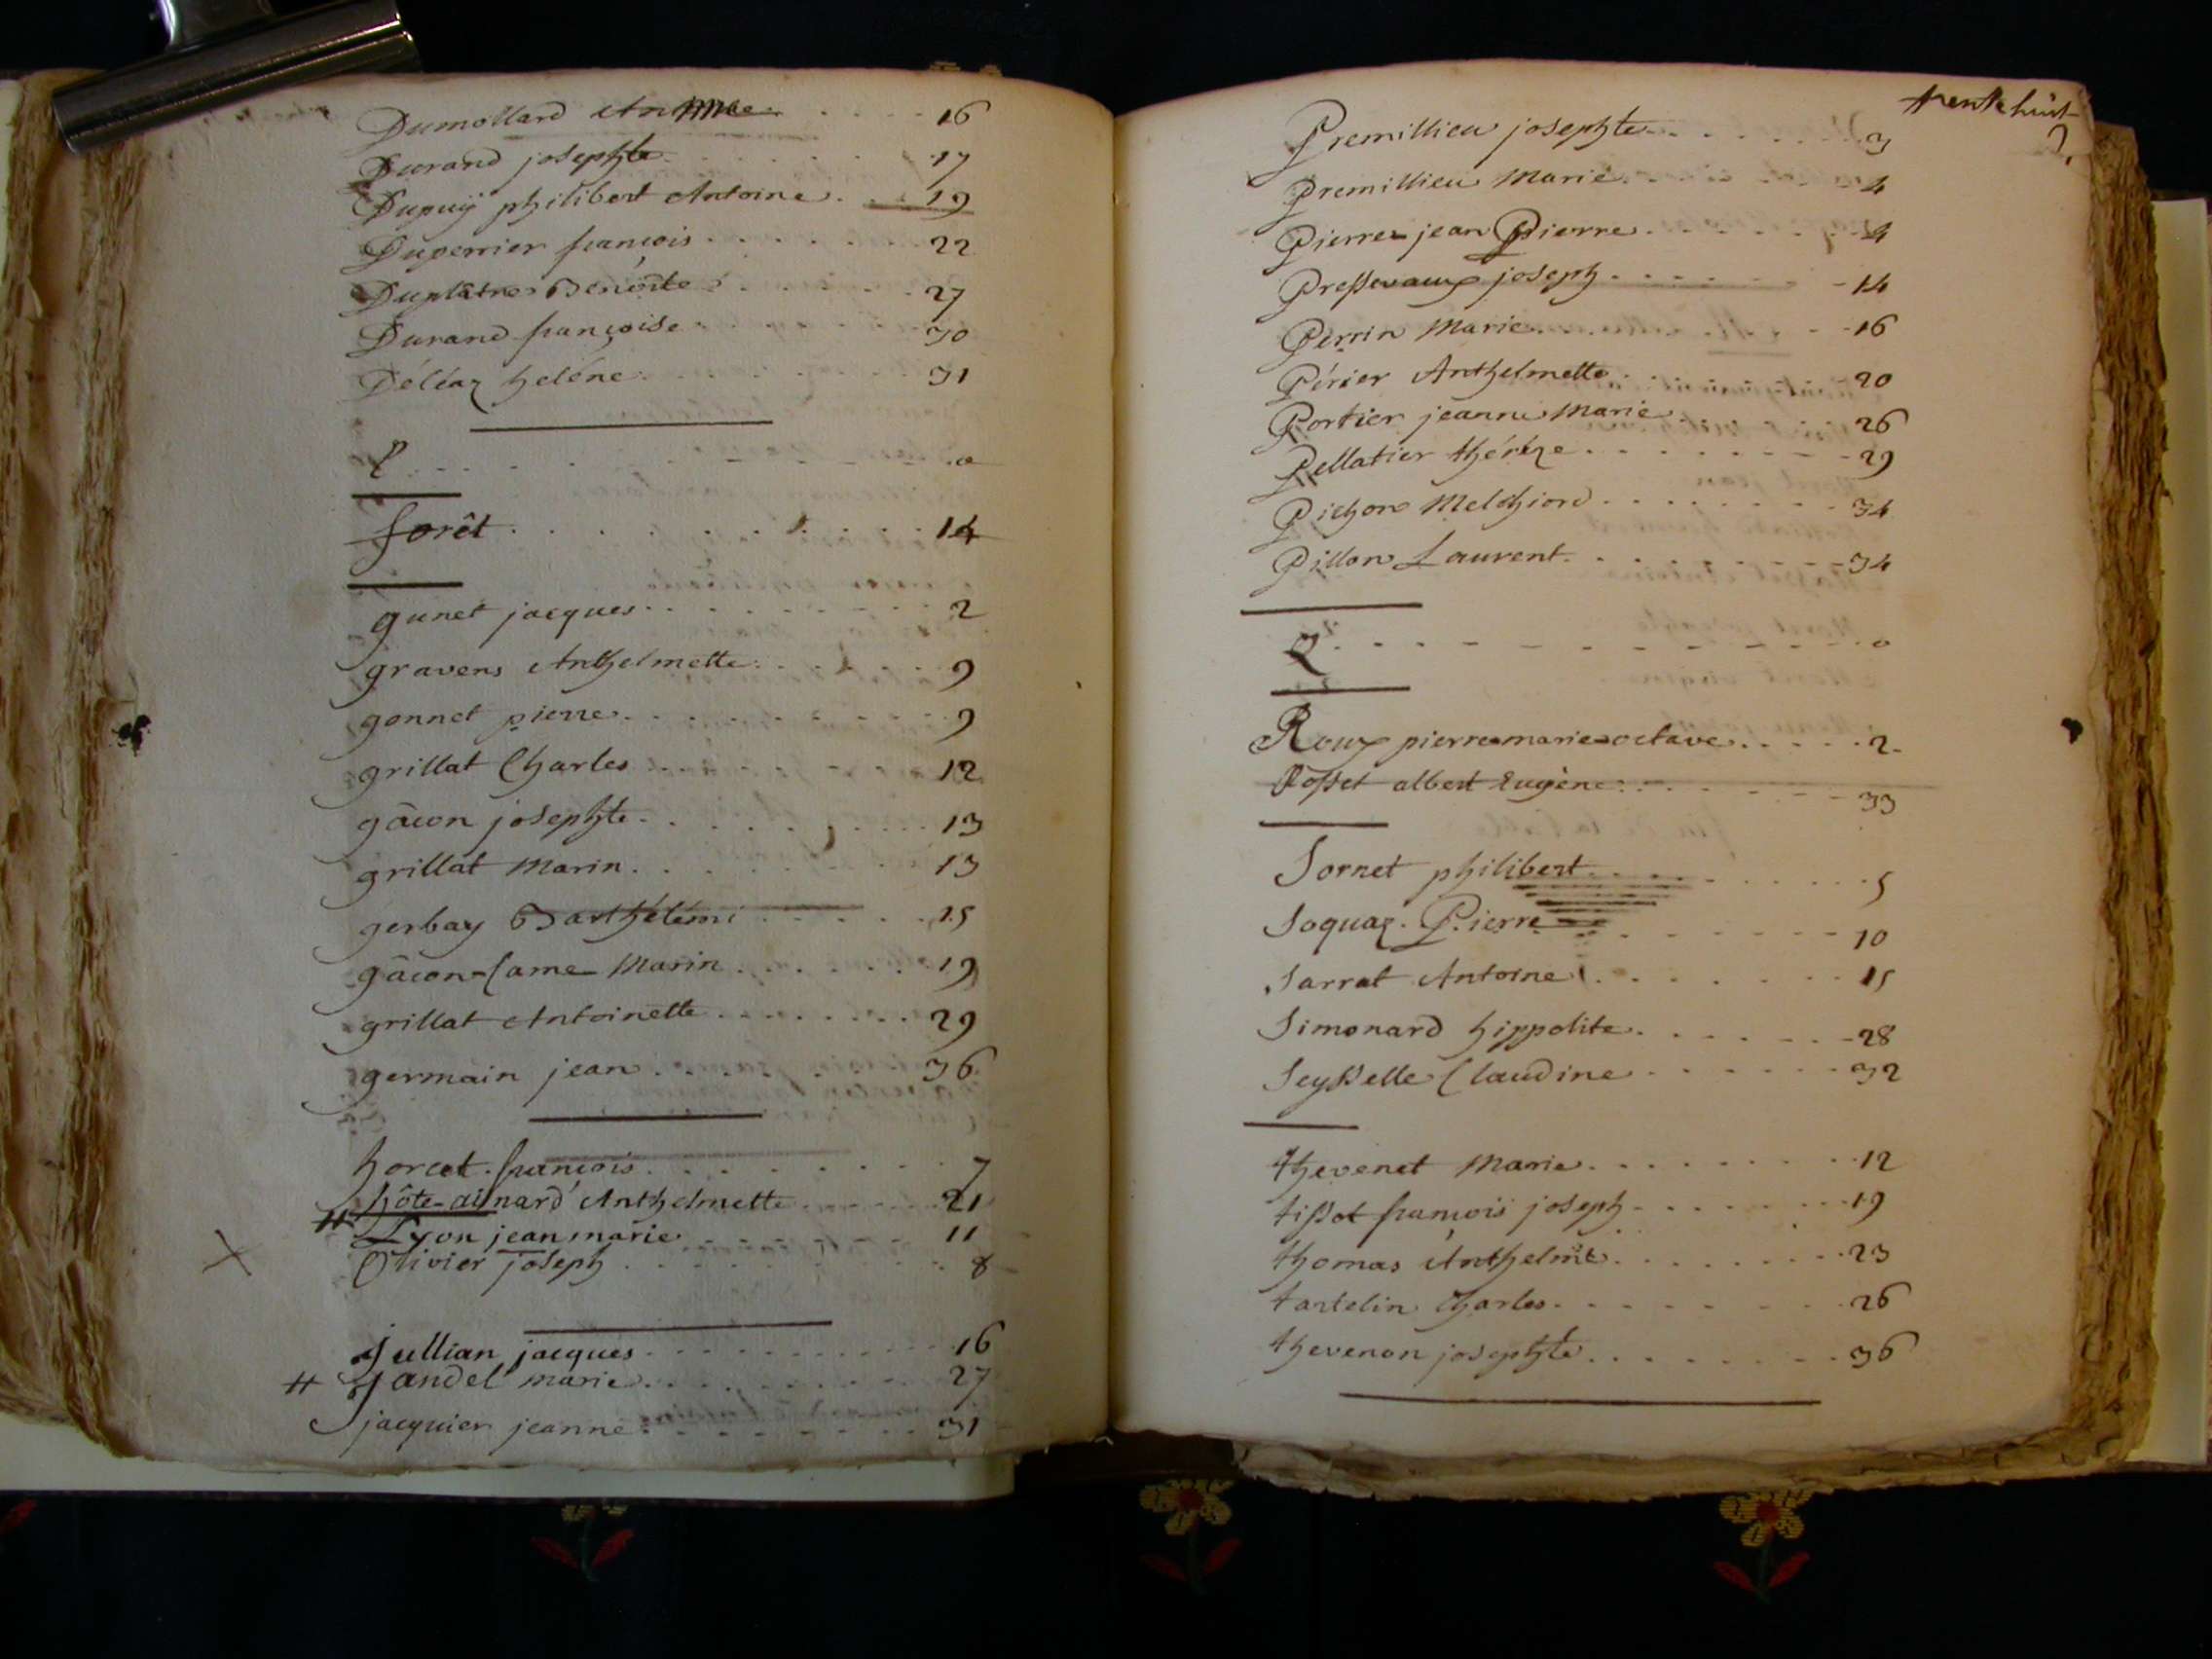 Dumollard Anne 16
Durand josephte 17
Dupuÿ philibert Antoine 19
Duperrier françois 22
Duplâtre Benoîte 27
Durand françoise 30
Déléaz heléne 31
E 0
forêt 14
gunet jacques 2
gravens Anthelmette 9
gonnet pierre 9
grillat Charles 12
gâcon josephte 13
grillat Marin 13
gerbay Barthélémi 15
gâcon-Came Marin 19
grillat Antoinette 29
germain jean 36
horcet françois 7
hôte-ainard Anthelmette 21
Lyon jean marie 11
Olivier joseph 8
jullian jacques 16
jandel marie 27
jacquier jeanne 31
trente huit
Premillieu josephte 3
Premillieu Marie 4
Pierre jean Pierre 4
Pressevaux joseph 14
Perrin Marie 16
Périer Anthelmette 20
Portier jeanne Marie 26
Pellatier thérèze 29
Pichon Melchiord 34
Pillon Laurent 34
Q 0
Roux pierre marie octave 2
Rosset albert Eugène 33
Sornet philibert 5
Soquaz Pierre 10
Sarrat Antoine 15
Simonard hippolite 28
Seysselle Claudine 32
thevenet Marie 12
tissot françois joseph 19
thomas Anthelme 23
tartelin Charles 26
thevenon josephte 36